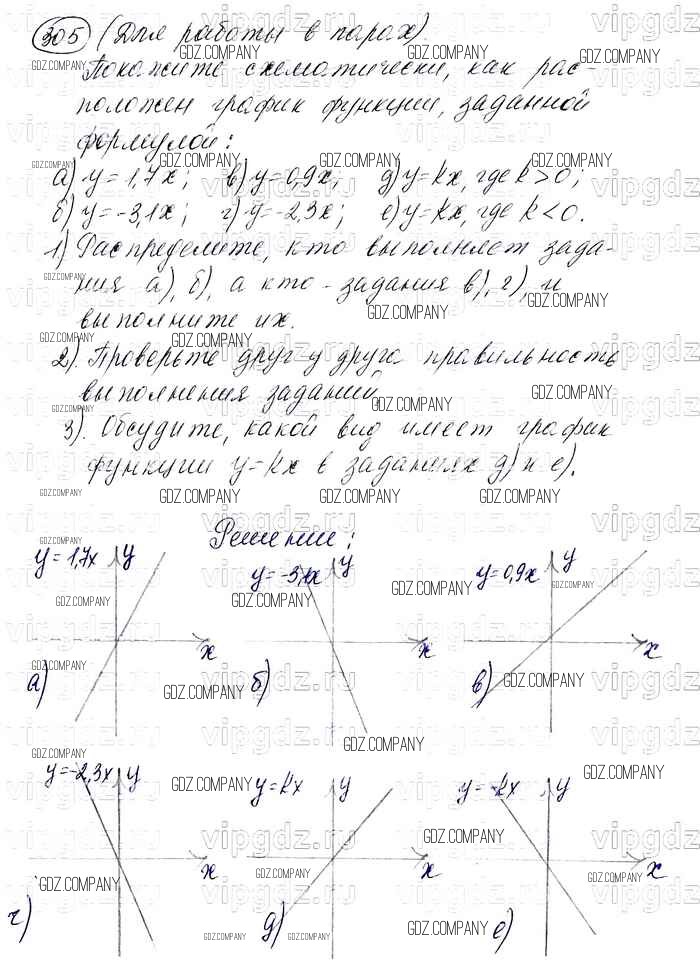 305 (Для работы в парах).
Покажите схематически, как рас-
положен график функции, заданной
формулой:
а) y = 1,7x; в) y = 0,9x; д) y = kx, где k > 0;
б) y = -3,1x; г) y = -2,3x; е) y = kx, где k < 0.
1) Распределите, кто выполняет зада-
ния а), б), а кто - задания в), г), и
выполните их.
2). Проверьте друг у друга правильность
выполнения заданий.
3). Обсудите, какой вид имеет график
функции y = kx в заданиях д) и е).
Решение:
y = 1,7x y y = -3,1x y y = 0,9x y
x x x
а) б) в)
y = -2,3x y y = kx y y = kx y
x x x
г) д) е)
GDZ.COMPANY
vipgdz.ru